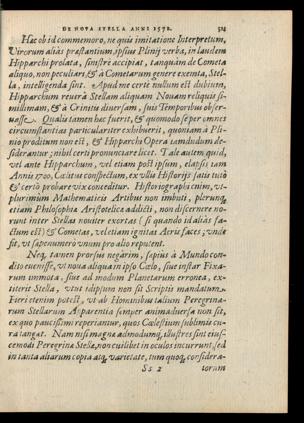 DE NOVA STELLA ANNI 1572.
Hac ob id commemoro, ne quis imitatione Interpretum,
Virorum alias præstantium, ipsius Plinij verba, in laudem
Hipparchi prolata, sinistrè accipiat, tanquàm de Cometa
aliquo, non peculiari, & à Cometarum genere exemta, Stel-
la, intelligenda sint. Apud me certè nullum est dubium,
Hipparchum reverà Stellam aliquam Novam reliquis si-
millimam, & à Crinitis diversam, sui Temporibus obser-
vasse. Qualis tamen hæc fuerit, & quomodo se per omnes
circumstantias particulariter exhibuerit, quoniam à Pli-
nio proditum non est, & Hipparchi Opera tamdudum de-
siderantur; nihil certi pronunciare licet. Tale autem quid,
vel ante Hipparchum, vel etiam post ipsum, elapsis tam
Annis 1700, Cælitus conspectum, ex ullis Historijs satis tutò
& certò probare vix conceditur. Historiographi enim, ut-
plurimum Mathematicis Artibus non imbuti, plerunq́;
etiam Philosophiæ Aristotelicæ addicti, non discernere no-
runt inter Stellas noviter exortas (si quando id alias fa-
ctum est) & Cometas, vel etiam ignitas Aeris faces; unde
fit, ut sæpenumerò unum pro alio reputent.
Neq́; tamen prorsus negârim, sæpius à Mundo con-
dito evenisse, ut nova aliqua in ipso Cælo, sive instar Fixa-
rum immota, sive ad modum Planetarum erronea, ex-
titerit Stella, utut id ipsum non sit Scriptis mandatum.
Fieri etenim potest, ut ab Hominibus talium Peregrina-
rum Stellarum Apparentia semper animadversa non sit,
ex quo paucissimi reperiantur, quos Cælestium sublimis cu-
ra tangat. Nam nisi magna admodumq́; illustres sint ejus-
cemodi Peregrinæ Stellæ, non cuilibet in oculos incurrunt, sed
in tanta aliarum copia atq́; varietate, tum quoq́; considera-
Ss 2 torum